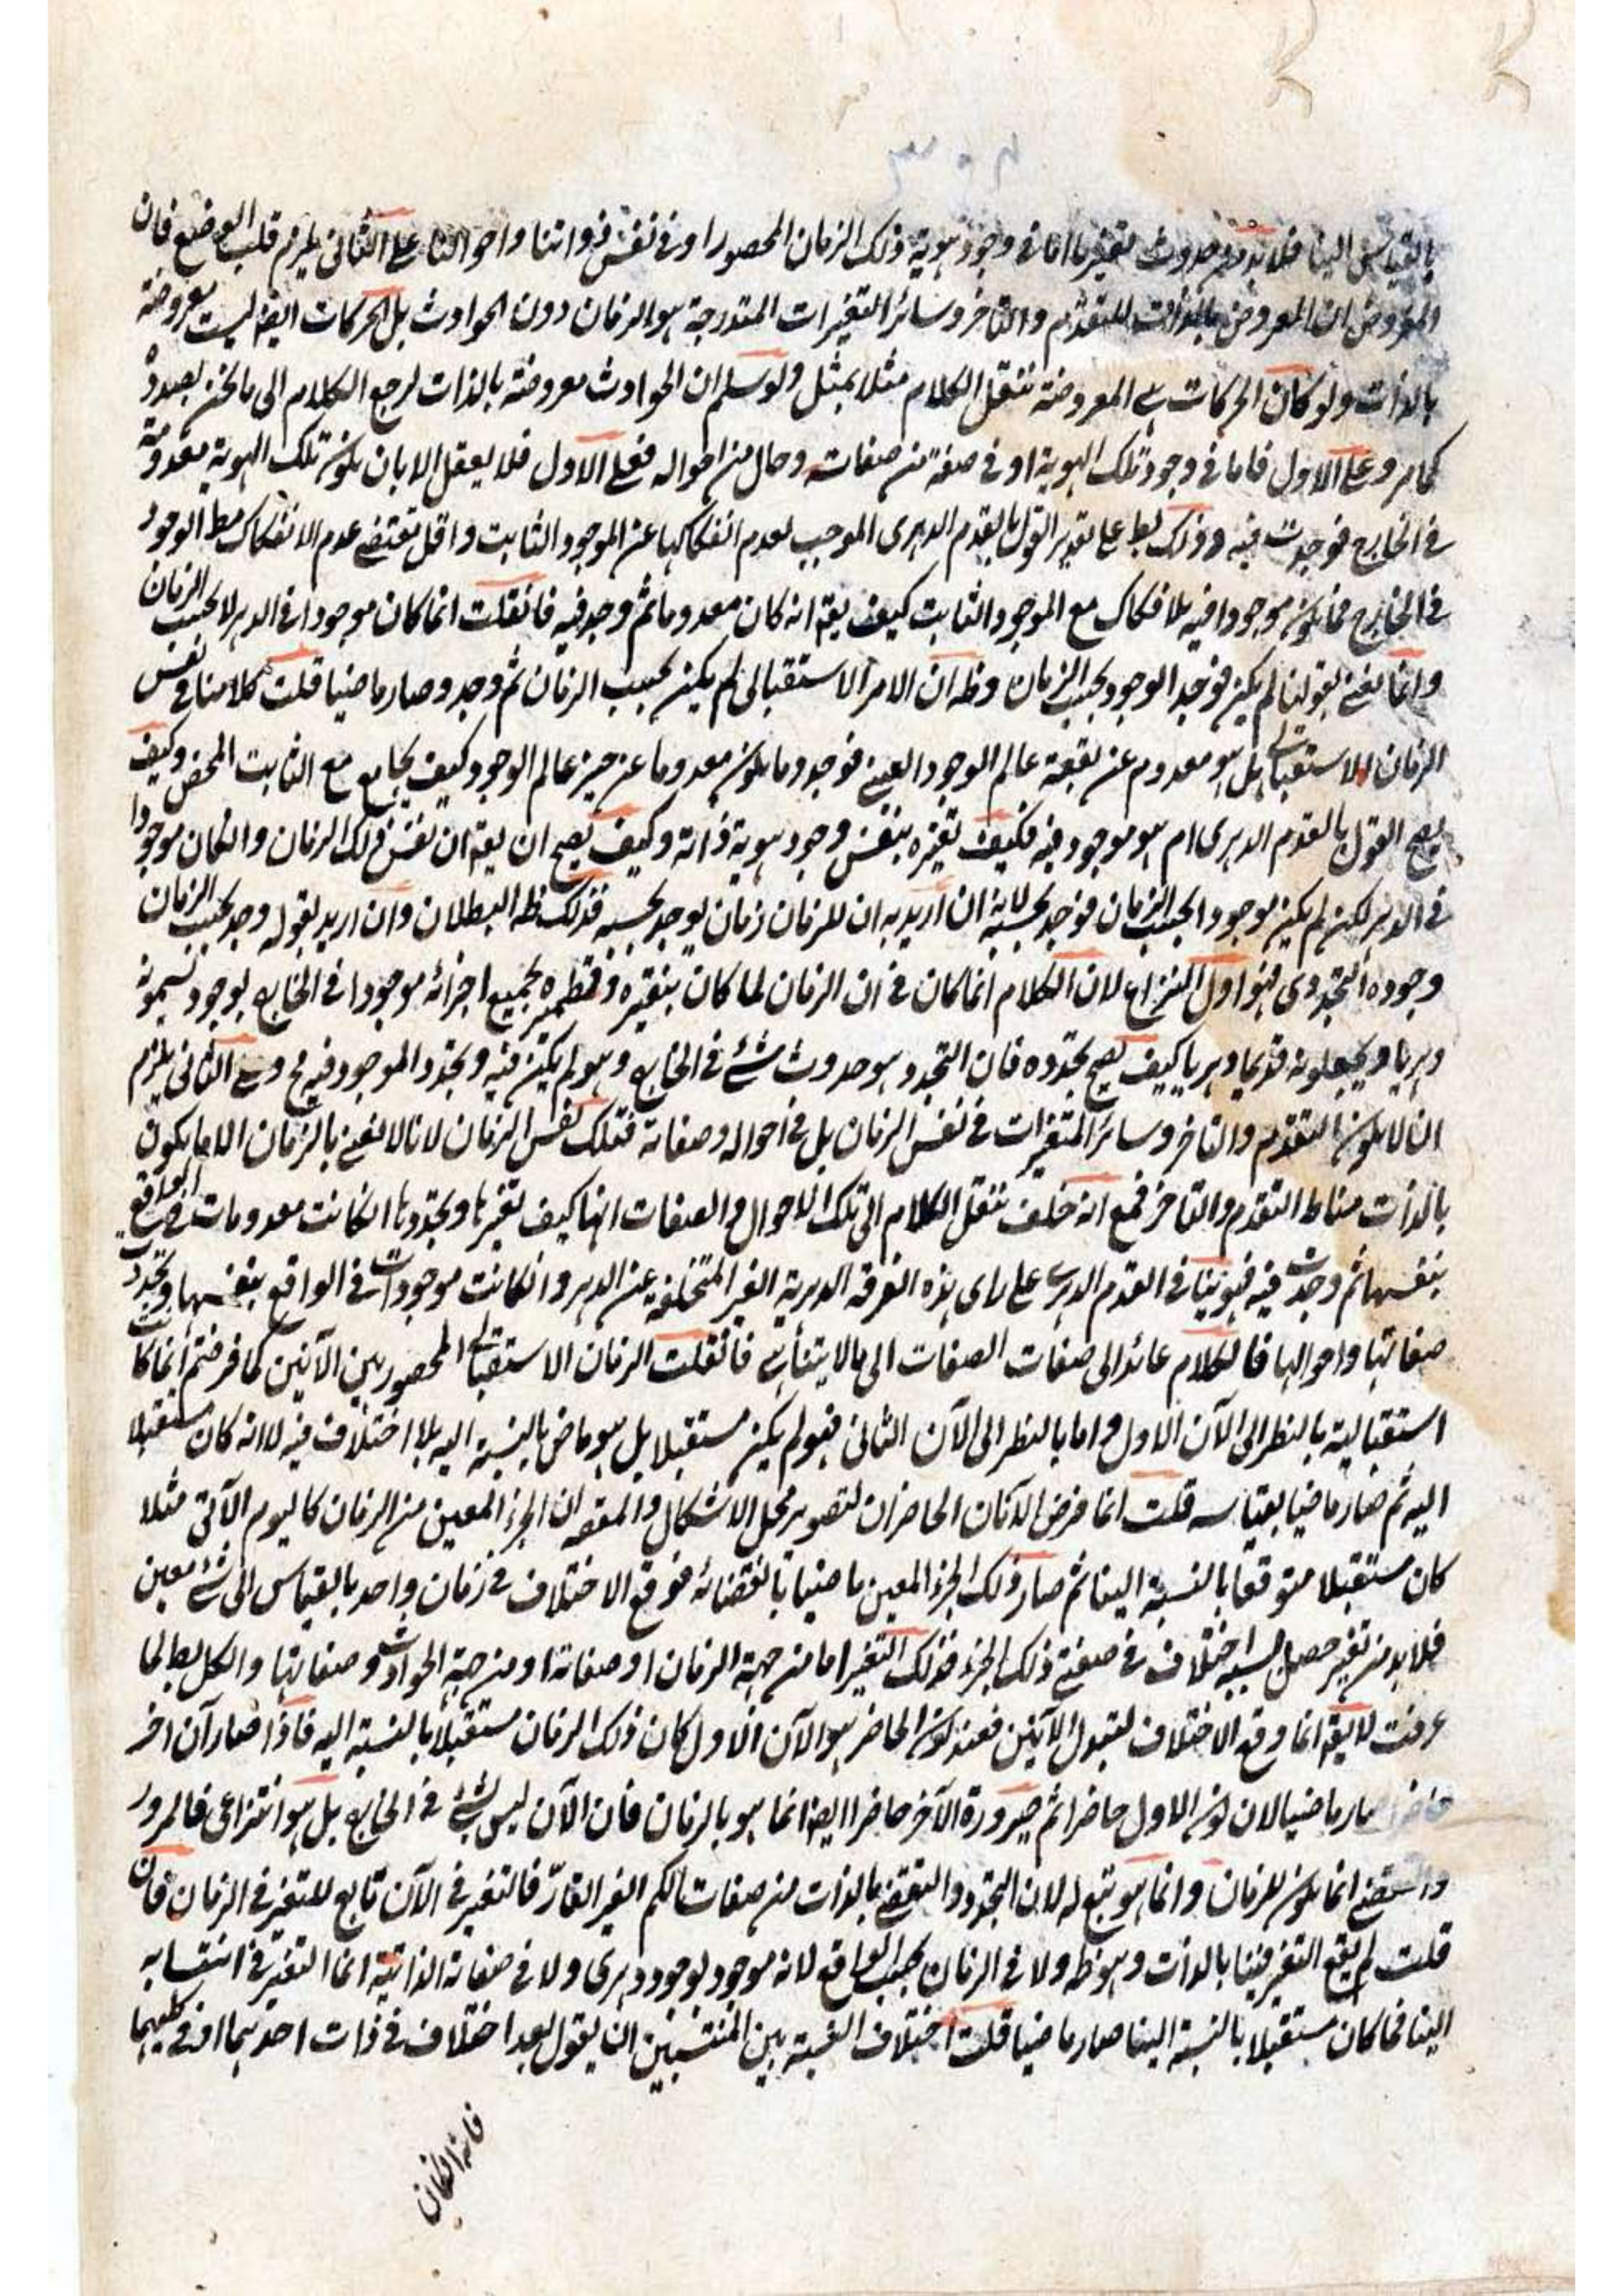 بالقياس الينا فلا بد من حدوث تغير ما اما في وجود هوية ذلك الزمان المحصور او في نفس ذواتنا واحوالنا على الثاني يلزم قلب الوضع فان
المفروض ان المعروض بالذات للتقدم والتاخر وسائر التغيرات المتدرجة هو الزمان دون الحوادث بل الحركات ايضا ليست معروضة
بالذات ولو كان الحركات هي المعروضة ننقل الكلام مثلا بمثل ولو سلم ان الحوادث معروضة بالذات لرجع الكلام الى ما نحن بصدده
كما مر وعلى الاول فاما في وجود تلك الهوية او في صفة من صفاته وحال من احواله فعلى الاول فلا يعقل الا بان يكون تلك الهوية معدومة
في الخارج فوجدت فيه وذلك بط على تقدير القول بالقدم الدهري الموجب لعدم انفكاكها عن الموجود الثابت واقل مقتضى عدم الانفكاك مط الوجود
في الخارج فما يكون موجودا فيه بلا فكاك مع الموجود الثابت كيف يقه انه كان معدوما ثم وجد فيه فانقلت انما كان موجودا في الدهر لا بحسب الزمان
وانما نعني بقولنا لم يكن فوجد الوجود بحسب الزمان وظ ان الامر الاستقبالي لم يكن بحسب الزمان ثم وجد وصار ماضيا قلت كلامنا في نفس
الزمان الاستقبالي هل هو معدوم عن بقعة عالم الوجود العيني فوجد وما يكون معدوما عن حيز عالم الوجود كيف يجامع مع الثابت المحض وكيف
يصح القول بالقدم الدهري ام هو موجود فيه فكيف تغيره بنفس وجود هوية ذاته وكيف يصح ان يقه ان نفس ذلك الزمان وان كان موجودا
في الدهر لكن لم يكن موجودا بحسب الزمان فوجد بحسبه لانه ان اريد به ان للزمان زمان يوجد بحسبه فذلك ظ البطلان وان اريد بقوله وجد بحسب الزمان
وجوده التجددي فهو اول النزاع لان الكلام انما كان في ان الزمان لما كان بنقيره وقطميره بجميع اجزائه موجودا في الخارج بوجود تسمونه
دهريا ويجعلونه قديما دهريا كيف يصح تجدده فان التجدد هو حدوث شئ في الخارج وهو لم يكن فيه وتجدد الموجود فيه مح وعلى الثاني يلزم
ان لا يكون التقدم والتاخر وسائر المتغيرات في نفس الزمان بل في احواله وصفاته فتلك نفس الزمان لانا لا نعني بالزمان الا ما يكون
بالذات مناط التقدم والتاخر فمع انه خلف ننقل الكلام الى تلك الاحوال والصفات انها كيف تغيرها وتجددها انكانت معدومات في الواقع
بنفسها ثم وجدت فيه فهو ينافي القدم الدهري على راى هذه الفرقة الدهرية الغير المتخلفة عن الدهر وانكانت موجودات في الواقع بنفسها وتجددت
صفاتها واحوالها فالكلام عائد الى صفات الصفات الى ما لا يتناهى فانقلت الزمان الاستقبالي المحصور بين الآنين كما فرضتم انما كانت
استقبالية بالنظر الى الآن الاول واما بالنظر الى الآن الثاني فهو لم يكن مستقبلا بل هو ماض بالنسبة اليه بلا اختلاف فيه لا انه كان مستقبلا
اليه ثم صار ماضيا بقياسه قلت انما فرض الآنان الحاضران لتصوير محل الاشكال والمقصه ان الجزء المعين من الزمان كاليوم الآتي مثلا
كان مستقبلا متوقعا بالنسبة الينا ثم صار ذلك الجزء المعين ماضيا بانقضائه فوقع الاختلاف في زمان واحد بالقياس الى شئ معين
فلا بد من تغير حصل بسببه اختلاف في صفتي ذلك الجزء فذلك التغير اما من جهة الزمان او صفاته او من جهة الحوادث وصفاتها والكل بط لما
عرفت لا يقه انما وقع الاختلاف لتبدل الآنين فعند كون الحاضر هو الآن الاول كان ذلك الزمان مستقبلا بالنسبة اليه فاذا صار آن اخر
حاضرا صار ماضيا لان كون الاول حاضرا ثم صيرورة الآخر حاضرا ايضا انما هو بالزمان فان الآن ليس بشئ في الخارج بل هو انتزاعي فالمرور
والتقضي انما يكون للزمان وانما هو بتبع له لان التجدد والتقضي بالذات من صفات الكم الغير القارّ فالتغير في الآن تابع للتغير في الزمان فان
قلت لم يقع التغير فينا بالذات وهو ظه ولا في الزمان بحسب الواقع لانه موجود بوجود دهري ولا في صفاته الذاتية انما التغير في انتسابه
الينا فما كان مستقبلا بالنسبة الينا صار ماضيا قلت اختلاف النسبة بين المنتسبين ان يقول بعد اختلاف في ذات احدهما او في كليهما
فانه انكان